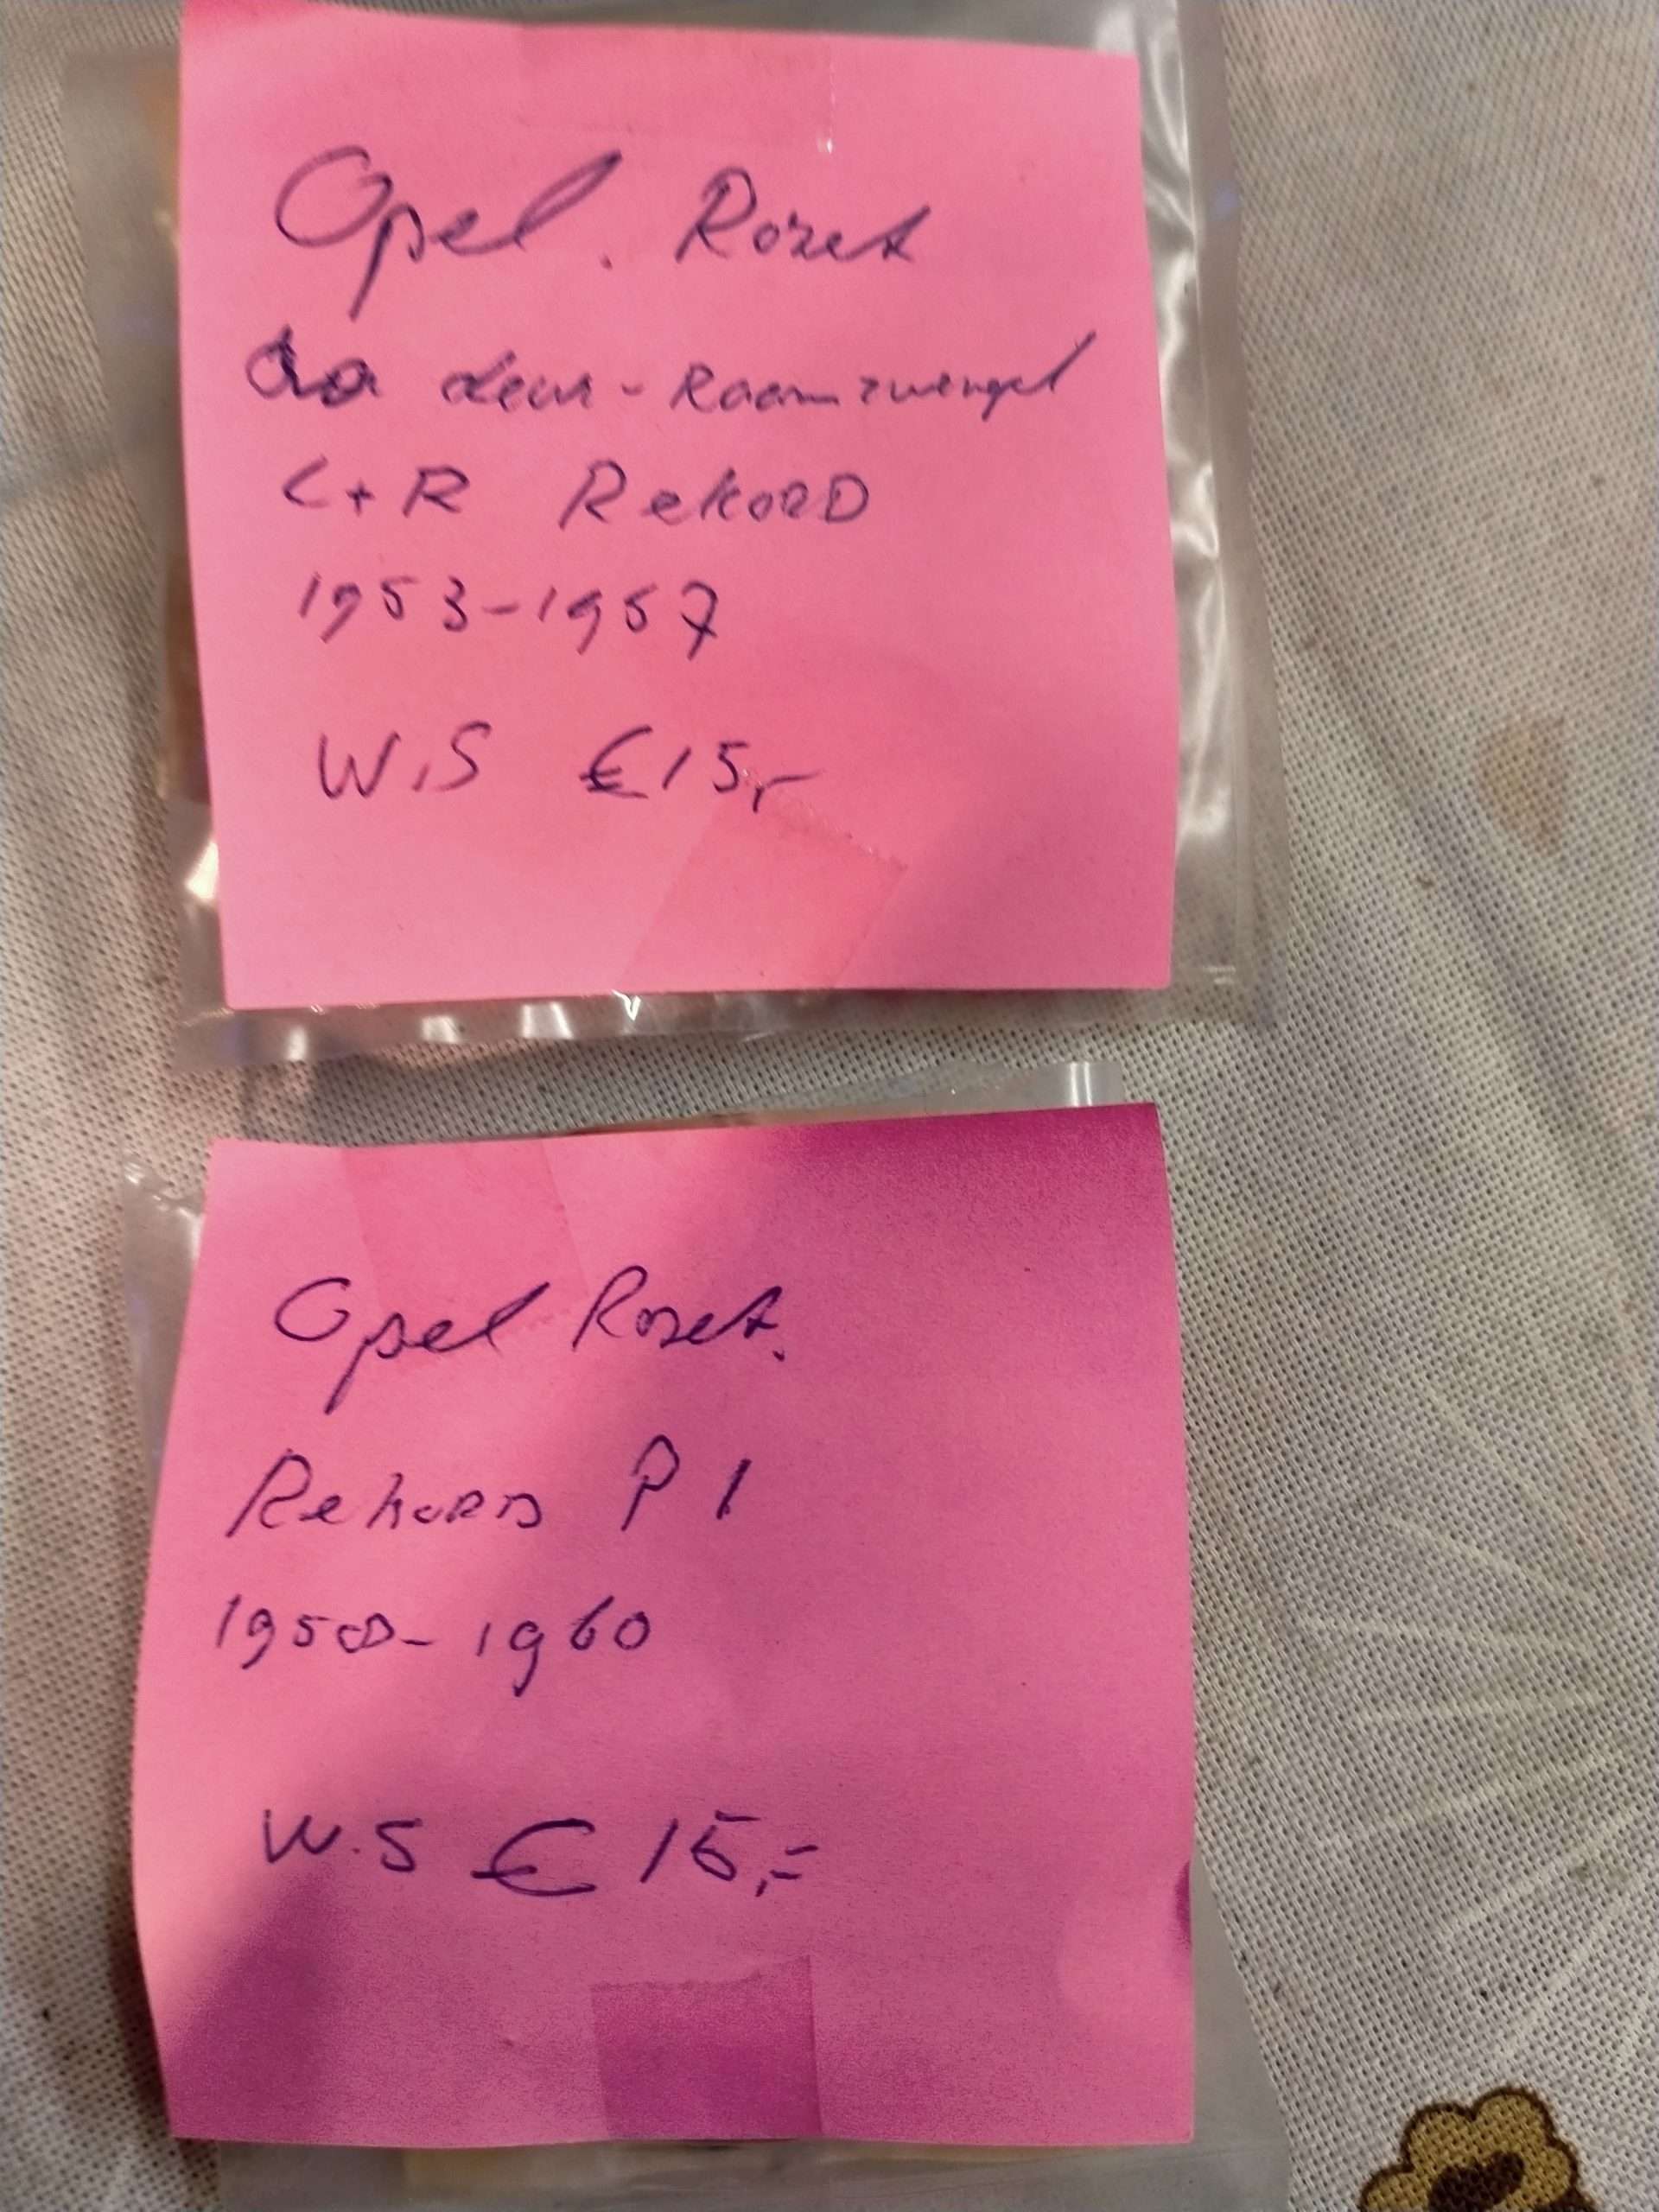 Opel. Rozet
deur - Raamzwengel
L+R RekoRD
1953-1957
W.S €15,-
Opel Rozet.
RekoRD P1
1958-1960
W.S € 15,=